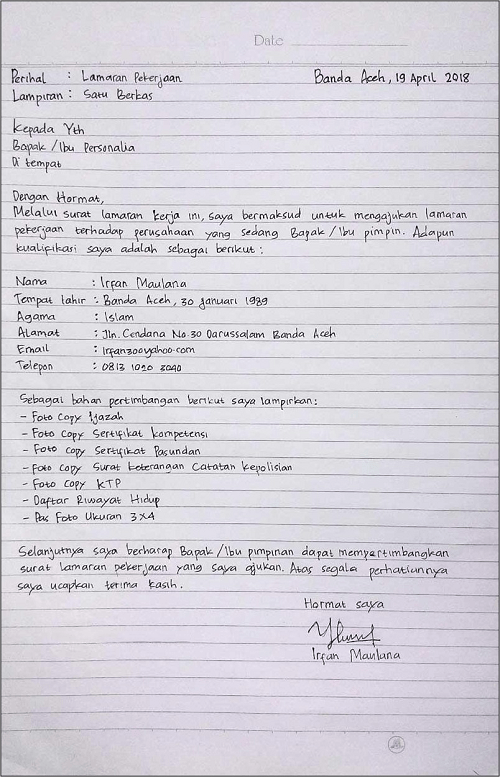 Date
Perihal : Lamaran Pekerjaan Banda Aceh, 19 April 2018
Lampiran : Satu Berkas
Kepada Yth
Bapak /Ibu Personalia
Di tempat
Dengan Hormat,
Melalui surat lamaran kerja ini, saya bermaksud untuk mengajukan lamaran
pekerjaan terhadap perusahaan yang sedang Bapak /Ibu pimpin. Adapun
kualifikasi saya adalah sebagai berikut :
Nama : Irfan Maulana
Tempat lahir : Banda Aceh, 30 Januari 1989
Agama : Islam
Alamat : Jln. Cendana No.30 Darussalam Banda Aceh
Email : Irfan300yahoo.com
Telepon : 0813 1020 3040
Sebagai bahan pertimbangan berikut saya lampirkan :
- Foto Copy Ijazah
- Foto Copy Sertifikat Kompetensi
- Foto Copy Sertifikat Pasundan
- Foto Copy Surat Keterangan Catatan Kepolisian
- Foto Copy KTP
- Daftar Riwayat Hidup
- Pas Foto Ukuran 3x4
Selanjutnya saya berharap Bapak /Ibu pimpinan dapat mempertimbangkan
surat lamaran pekerjaan yang saya ajukan. Atas segala perhatiannya
saya ucapkan terima kasih.
Hormat saya
Irfan Maulana